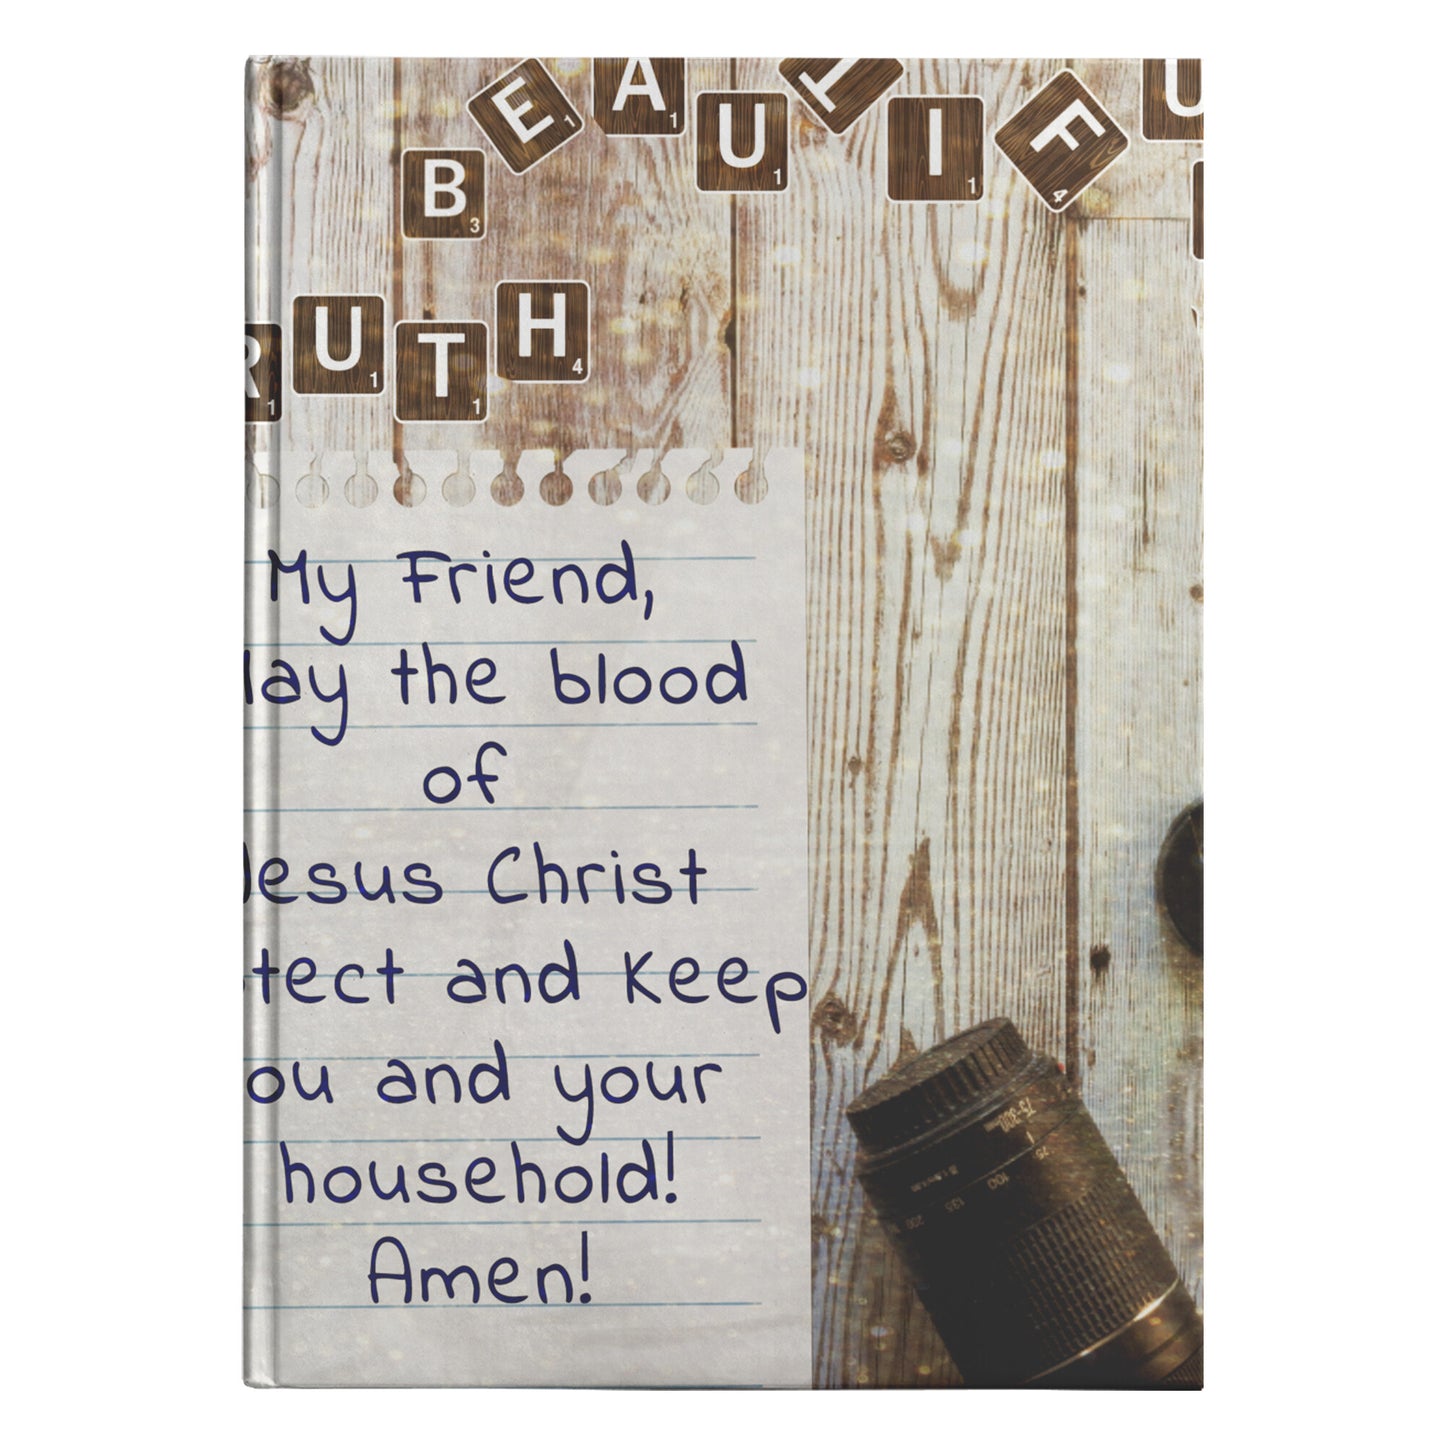 BEAUTIFU
RUTH
My Friend,
ay the blood
of
Jesus Christ
tect and Keep
ou and your
household!
Amen!
75-300
75
100
135
200